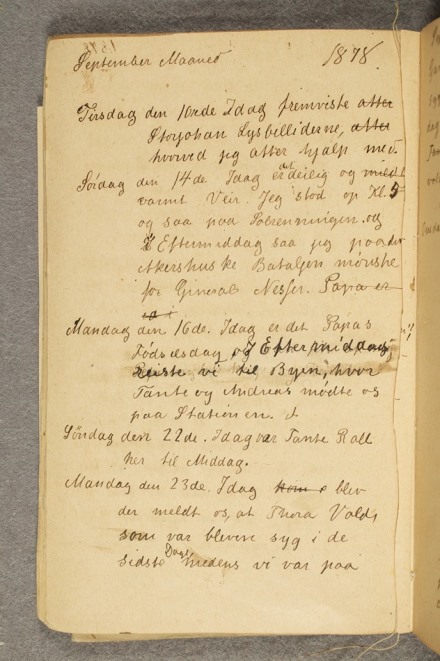 September Maaned 1878.
Tirsdag den 10nde Idag fremviste atter
Storjohan Lysbillederne, atter
hvorved jeg atter hjalp med
Lørdag den 14de Idag er det deilig og mildt
varmt Veir. Jeg stod op Kl. 5
og saa paa Solrenningen. og
Eftermiddag saa jeg paa den
Akershuske Bataljon mønstre
for General Nesser. Papa er
Mandag den 16de. Idag er det Papas
Fødselsdag og I Eftermiddag
reiste vi til Byen, hvor
Tante og Andreas mødte os
paa Stationen.
Søndag den 22de. Idag var Tante Roll
her til Middag.
Mandag den 23de. Idag blev
der meldt os, at Thora Vold,
som var bleven syg i de
sidste Dage medens vi var paa